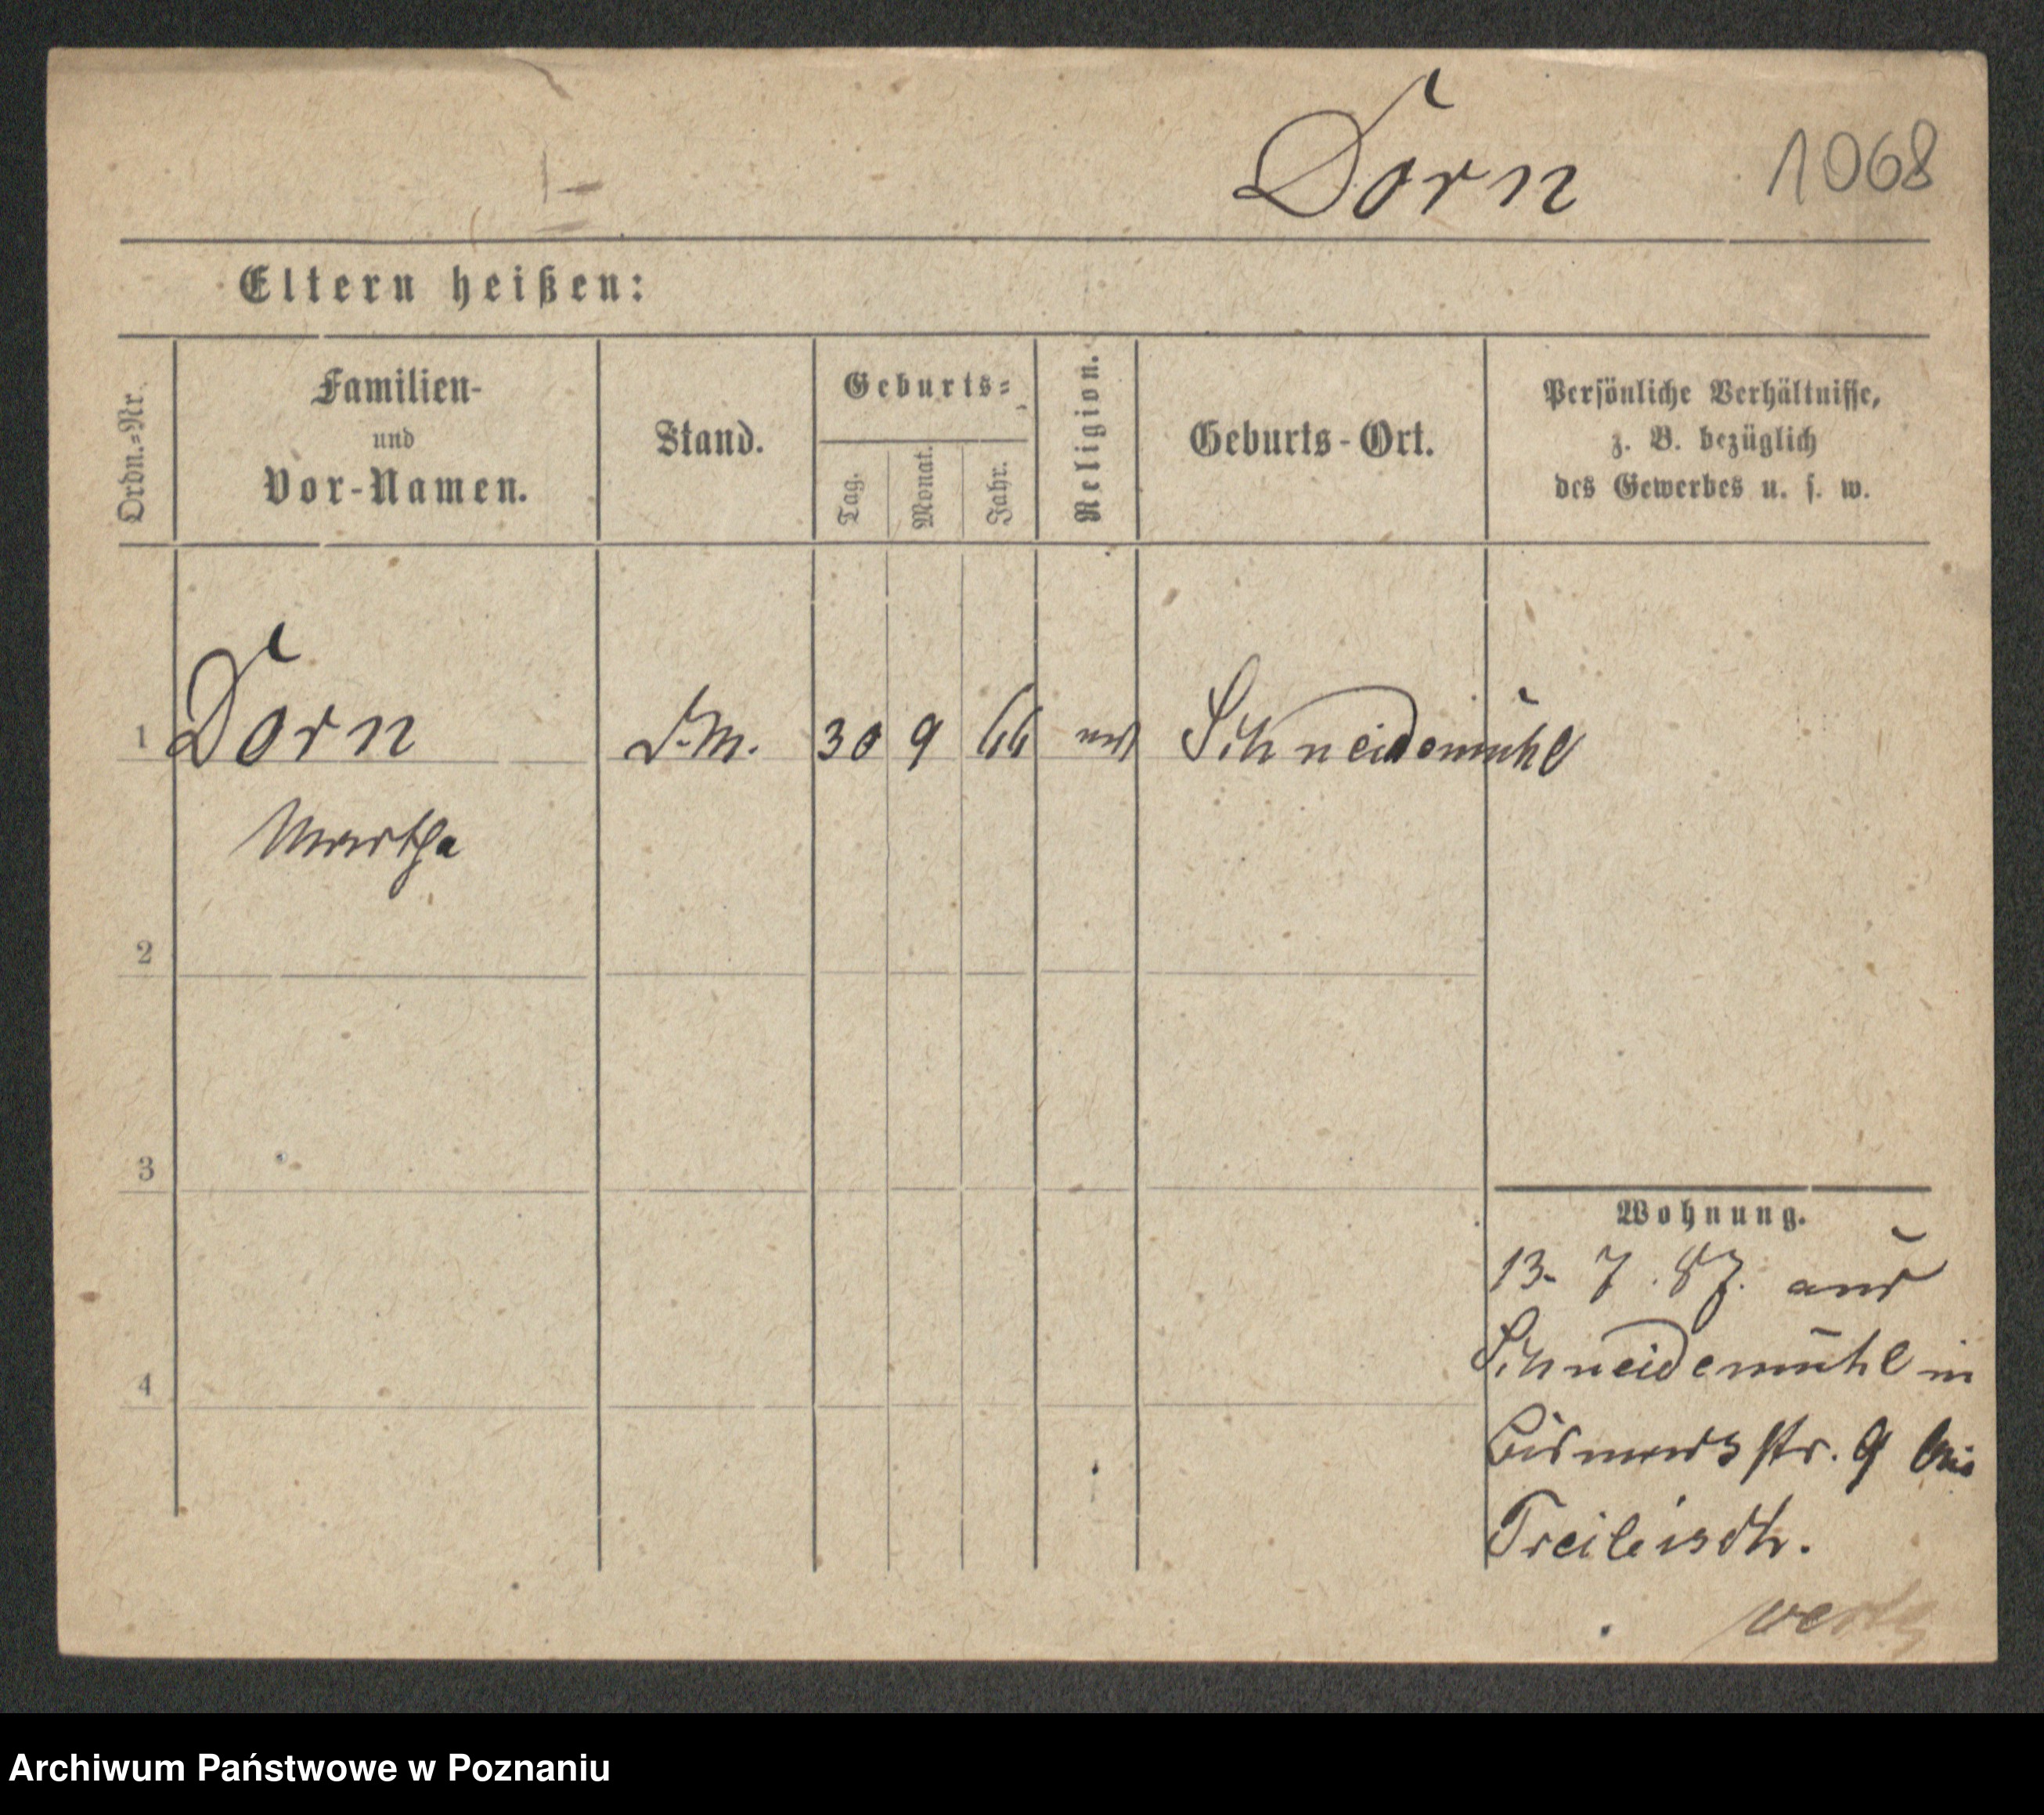 Dorn 1068
Eltern heißen:
Ordn.=Nr.
Familien-
und
Vor-Namen.
Stand.
Geburts=
Tag.
Monat.
Jahr.
Religion.
Geburts-Ort.
Persönliche Verhältnisse,
z. B. bezüglich
des Gewerbes u. s. w.
1 Dorn D.M. 30 9 66 Schneidemühl
Martha
2
3
4
Wohnung.
13. 7. 87. aus
Schneidemühl in
Bismarckstr. 9 bei
Archiwum Państwowe w Poznaniu